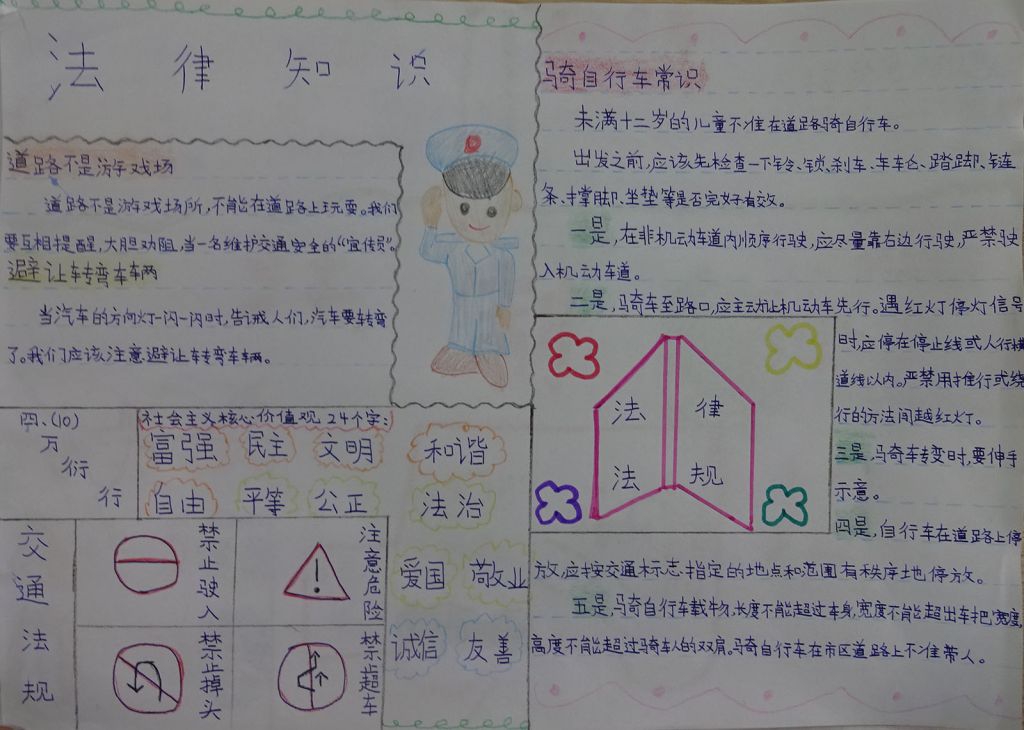 法律知识
道路不是游戏场
道路不是游戏场所，不能在道路上玩耍。我们
要互相提醒，大胆劝阻，当一名维护交通安全的“宣传员”。
避让车转弯车车辆
当汽车的方向灯一闪一闪时，告诫人们，汽车要转弯
了。我们应该注意避让车转弯车辆。
四、(10)
万
衍
行
社会主义核心价值观24个字:
富强 民主 文明 和谐
自由 平等 公正 法治
爱国 敬业
诚信 友善
交通法规
禁止驶入
注意危险
禁止掉头
禁止超车
骑自行车常识
未满十二岁的儿童不准在道路骑自行车。
出发之前，应该先检查一下铃、锁、刹车、车轮、踏脚、链
条、撑脚、坐垫等是否完好有效。
一是，在非机动车道内顺序行驶，应尽量靠右边行驶，严禁驶
入机动车道。
二是，骑车至路口，应主动让机动车先行。遇红灯停灯信号
时，应停在停止线或人行横
道线以内。严禁用推行或绕
行的方法闯越红灯。
三是，骑车转变时，要伸手
示意。
四是，自行车在道路上停
放，应按交通标志指定的地点和范围有秩序地停放。
五是，骑自行车载物，长度不能超过车身，宽度不能超出车把宽度，
高度不能超过骑车人的双肩。骑自行车在市区道路上不准带人。
法律
法规